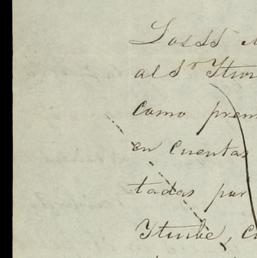 Los SS
al Sr Itur
como prem
en cuentas
tadas por
Iturbe, C